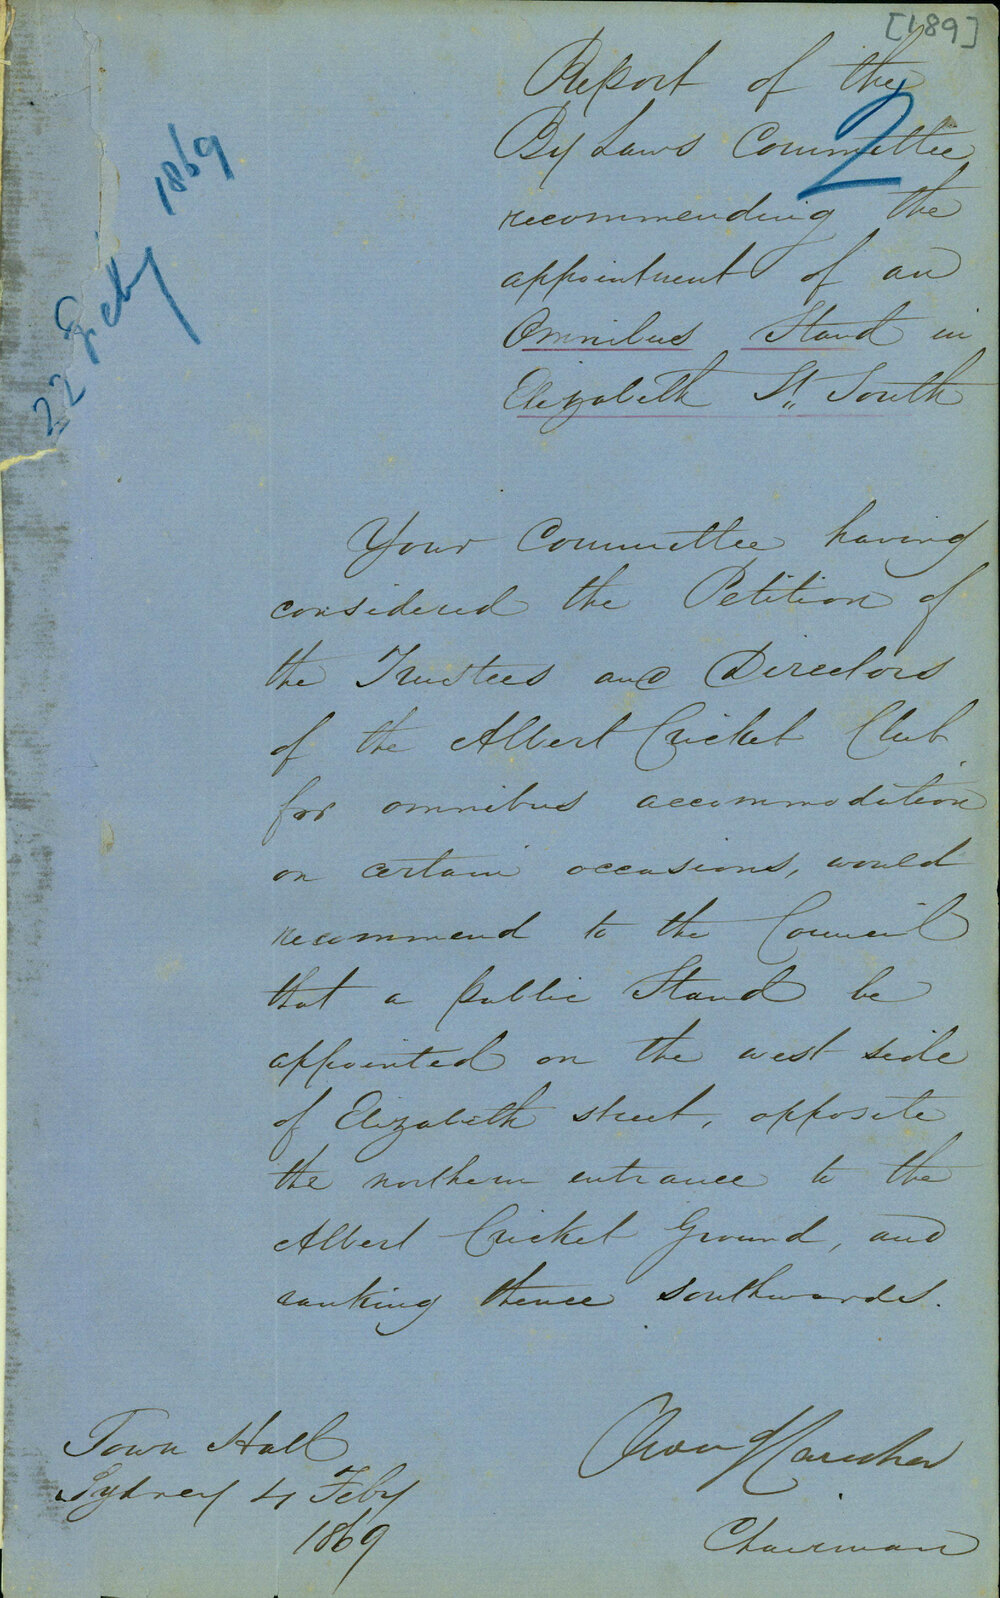 [189]
Report of the
By Laws Committee
2
recommending the
appointment of an
Omnibus Stand in
Elizabeth St,, South
22 Feby 1869
Your Committee having
considered the Petition of
the Trustees and Directors
of the Albert Cricket Club
for omnibus accommodation
on certain occasions, would
recommend to the Council
that a public Stand be
appointed on the west side
of Elizabeth street, opposite
the northern entrance to the
Albert Cricket Ground, and
ranking thence southwards.
Town Hall
Sydney 4 Feby
1869
Chairman